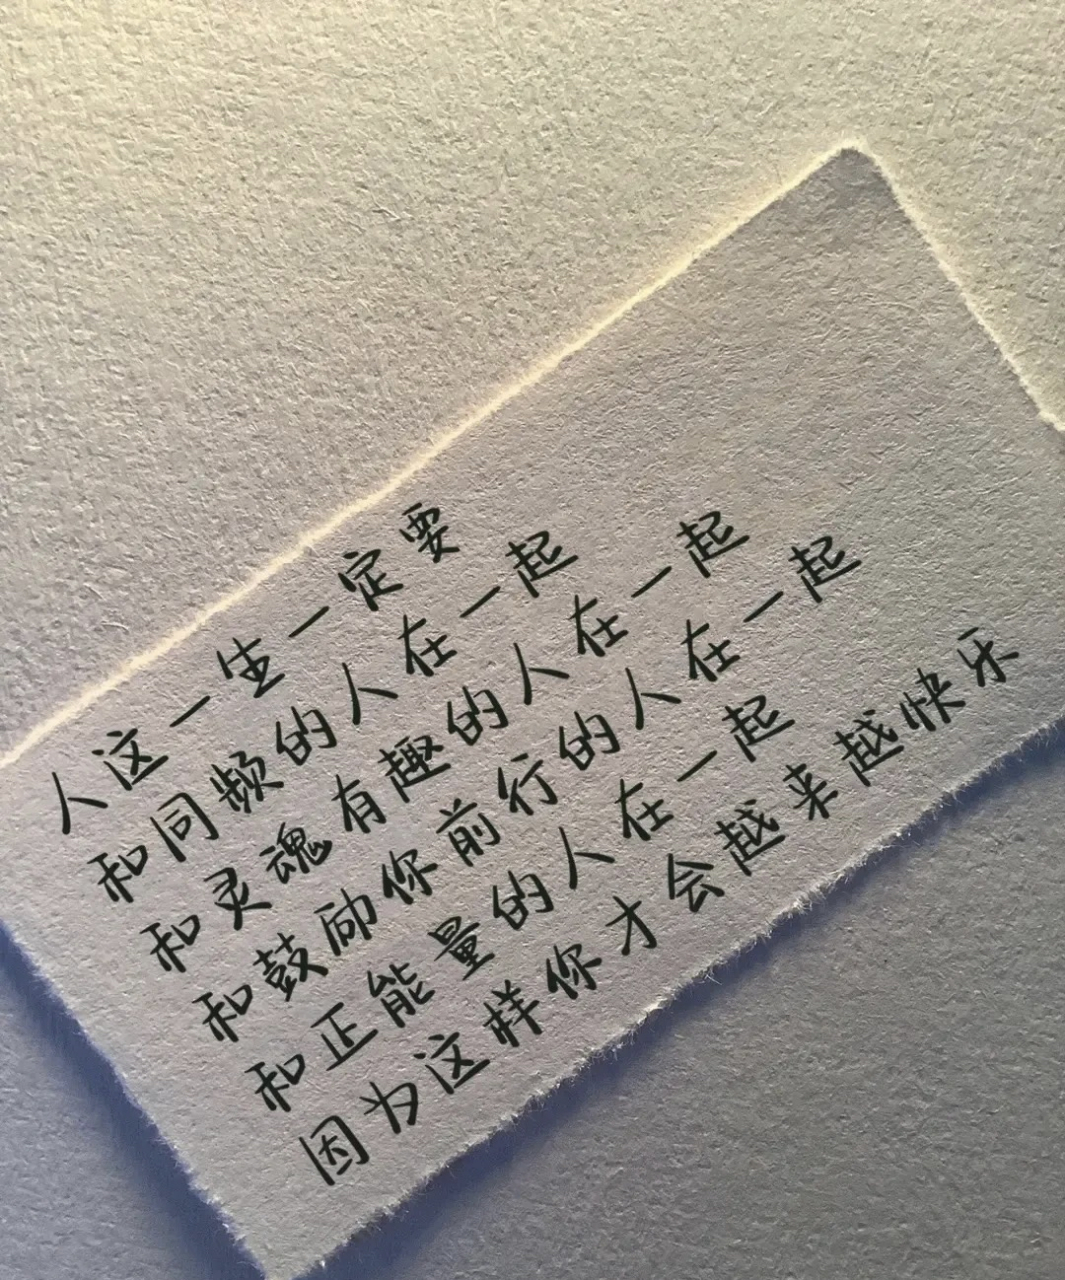 人这一生一定要
和同频的人在一起
和灵魂有趣的人在一起
和鼓励你前行的人在一起
和正能量的人在一起
因为这样你才会越来越快乐